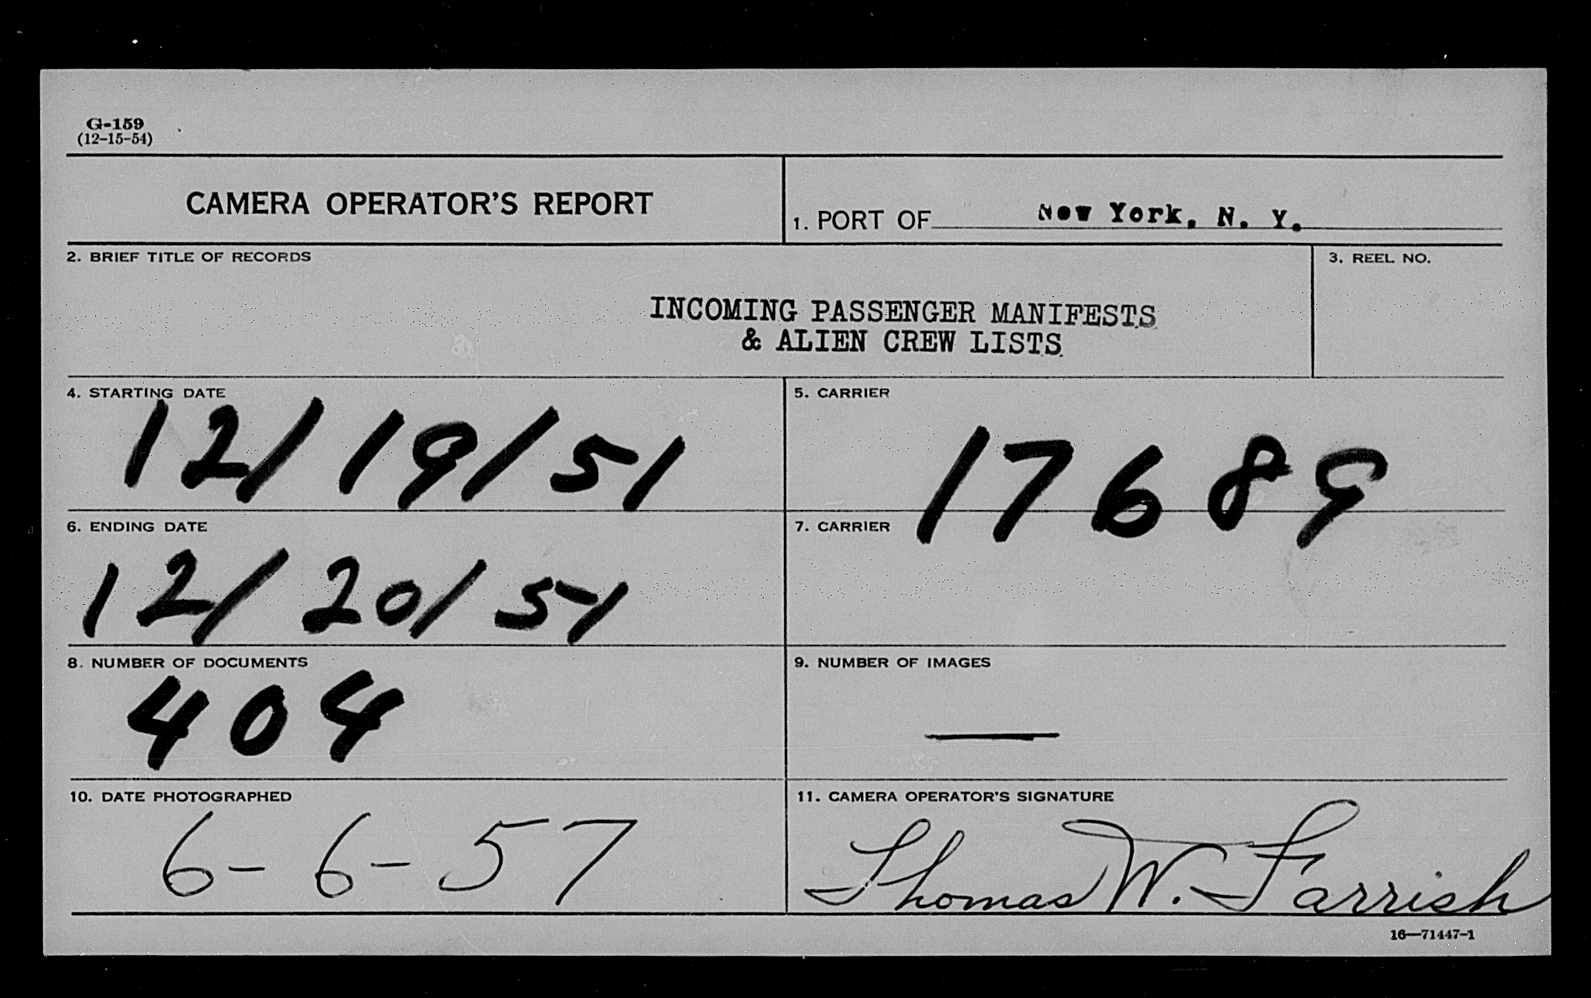 G-159
(12-15-54)
CAMERA OPERATOR'S REPORT
1. PORT OF New York, N. Y.
2. BRIEF TITLE OF RECORDS
3. REEL NO.
INCOMING PASSENGER MANIFESTS
& ALIEN CREW LISTS
4. STARTING DATE
12/19/51
5. CARRIER
17689
6. ENDING DATE
12/20/51
7. CARRIER
8. NUMBER OF DOCUMENTS
404
9. NUMBER OF IMAGES
—
10. DATE PHOTOGRAPHED
6-6-57
11. CAMERA OPERATOR'S SIGNATURE
Thomas W. Farrish
16—71447-1